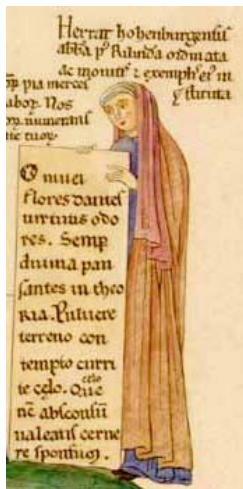 Herrat hohenburgensis
abba p⁹ Rilinda ordinata
ac monitis ⁊ exemplis ei⁹ in
stituta
pia merces
labor. Nos
numerans
O nivei
flores dantes
virtutis odo
res. Semp
divina pau
santes in theo
ria. Pulvere
terreno con
tempto curri
te celo. Que
nc̄ absconsū
valeatis cerne
re sponsum.